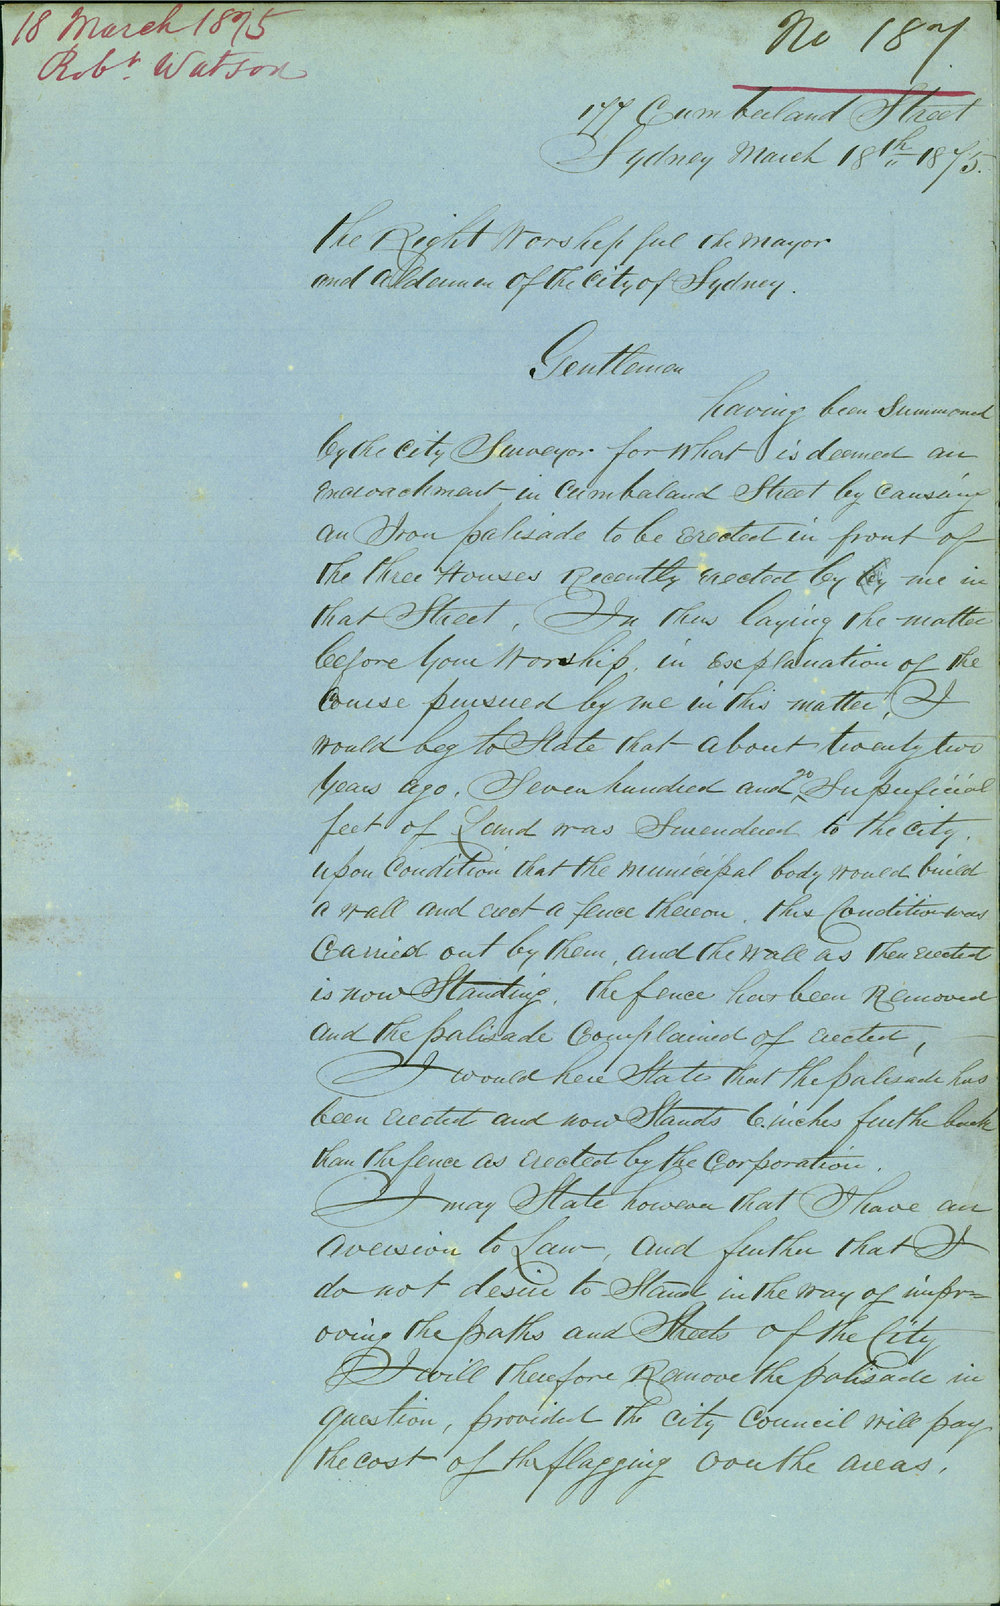 18 March 1875
Robt. Watson
No 187
177 Cumberland Street
Sydney March 18th 1875.
The Right Worshipful the Mayor
and Aldermen of the City of Sydney.
Gentlemen
having been Summoned
by the City Surveyor for what is deemed an
encroachment in Cumberland Street by causing
an Iron palisade to be erected in front of
the three Houses Recently erected by by me in
that Street. In thus laying the matter
before Your Worship. in Explanation of the
Course pursued by me in this matter, I
would beg to State that about twenty two
Years ago. Seven hundred and 20 Superficial
feet of Land was Surrendered to the City.
upon Condition that the Municipal body would build
a wall and erect a fence thereon. this Condition was
Carried out by them, and the Wall as then erected
is now Standing. the fence has been Removed
and the palisade Complained of erected,
I would here State that the palisade has
been erected and now Stands 6. inches further back
than the fence as erected by the Corporation.
I may State however that I have an
aversion to Law, and further that I
do not desire to Stand in the way of impr=
oving the paths and Streets of the City
I will therefore Remove the palisade in
question, provided the City Council will pay
the cost of the flagging over the areas.